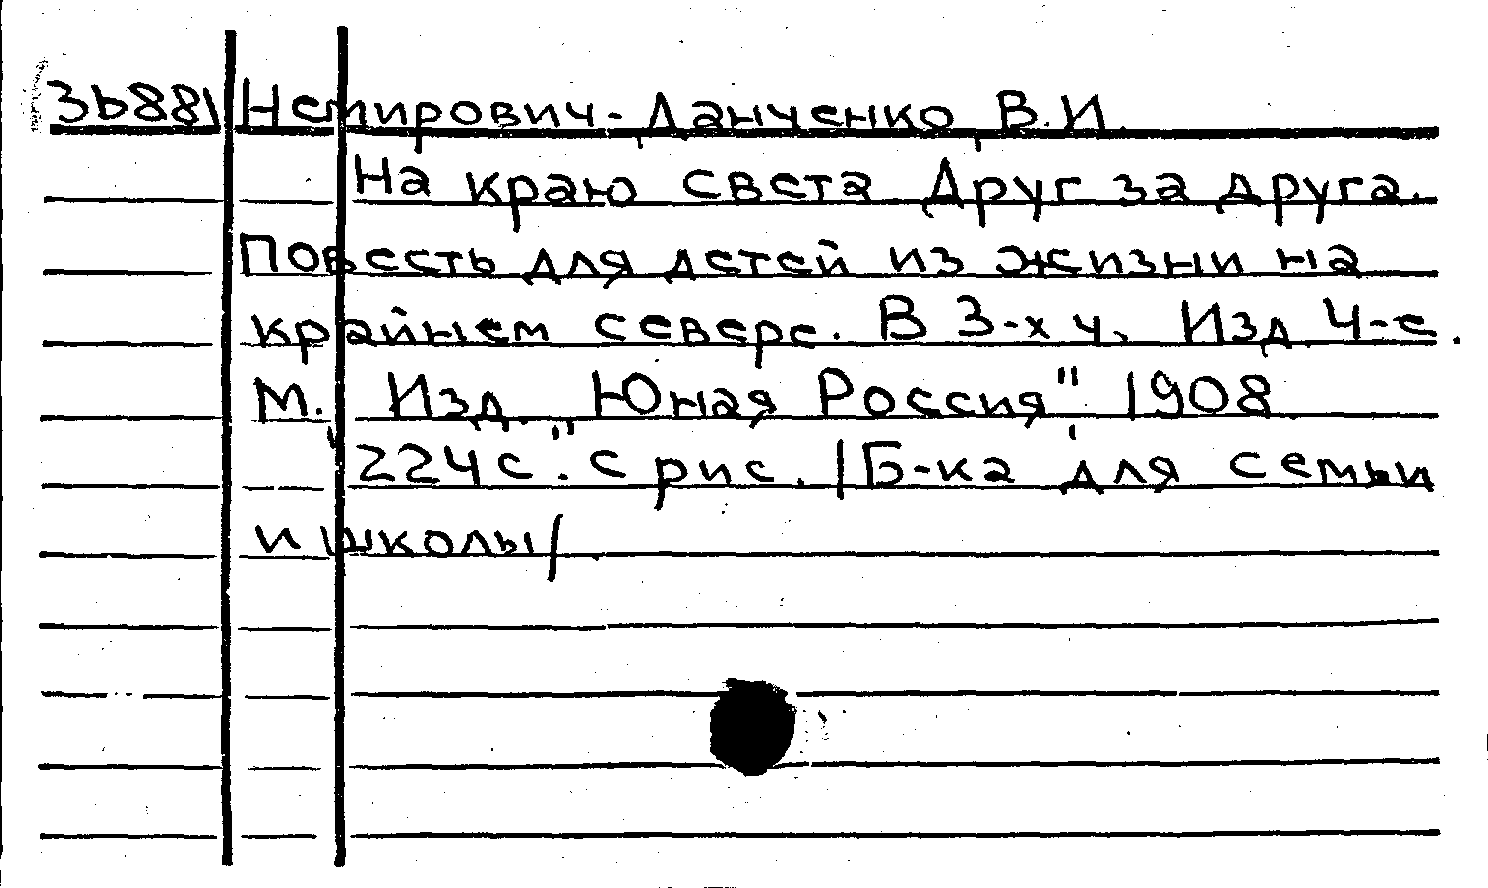 3b881 Немирович-Данченко В.И.
На краю света Друг за друга.
Повесть для детей из жизни на
крайнем севере. В 3-х ч. Изд 4-е.
М. Изд. "Юная Россия" 1908
224с. с рис. /Б-ка для семьи
и школы/